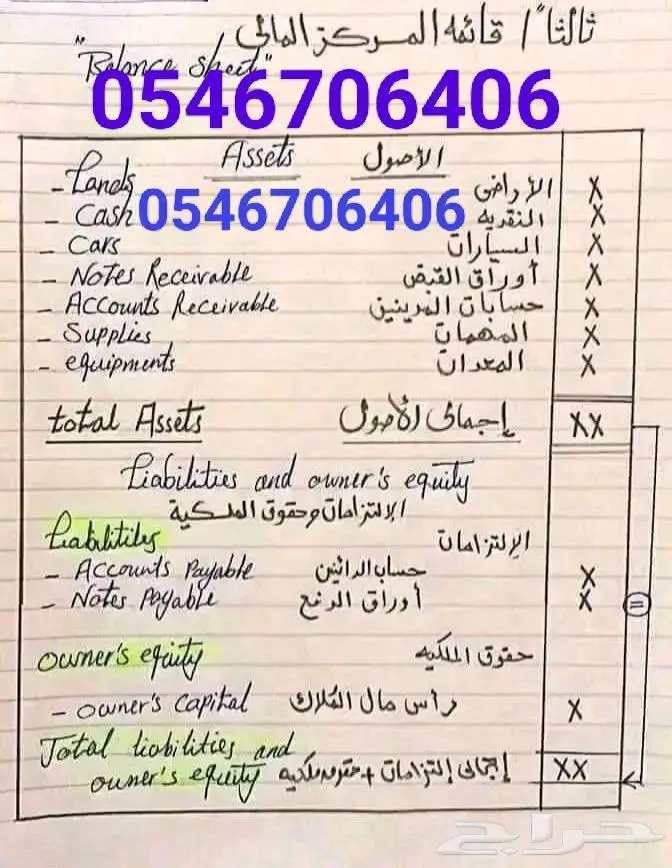 ثالثاً / قائمه المركز المالي
"Balance sheet"
0546706406
Assets الأصول
- Lands الأراضى X
- Cash 0546706406 النقديه X
- Cars السيارات X
- Notes Receivable أوراق القبض X
- Accounts Receivable حسابات المدينين X
- Supplies المهمات X
- equipments المعدات X
total Assets إجمالى الأصول XX
Liabilities and owner's equity
الإلتزامات وحقوق الملكية
Liabilitiles الإلتزامات
- Accounts Payable حساب الدائنين X
- Notes Payable أوراق الدفع X
=
owner's equity حقوق الملكيه
- owner's capital رأس مال الملاك X
Total liabilities and
owner's equity إجمالى إلتزامات + حقوق ملكيه XX
حراج